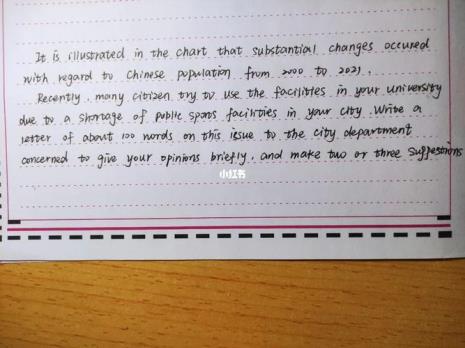 It is illustrated in the chart that substantial changes occured
with regard to Chinese population from 2000 to 2021.
Recently, many citizen try to use the facilities in your university
due to a shortage of public sports facilities in your city. Write a
letter of about 100 words on this issue to the city department
concerned to give your opinions briefly, and make two or three suggestions
小红书